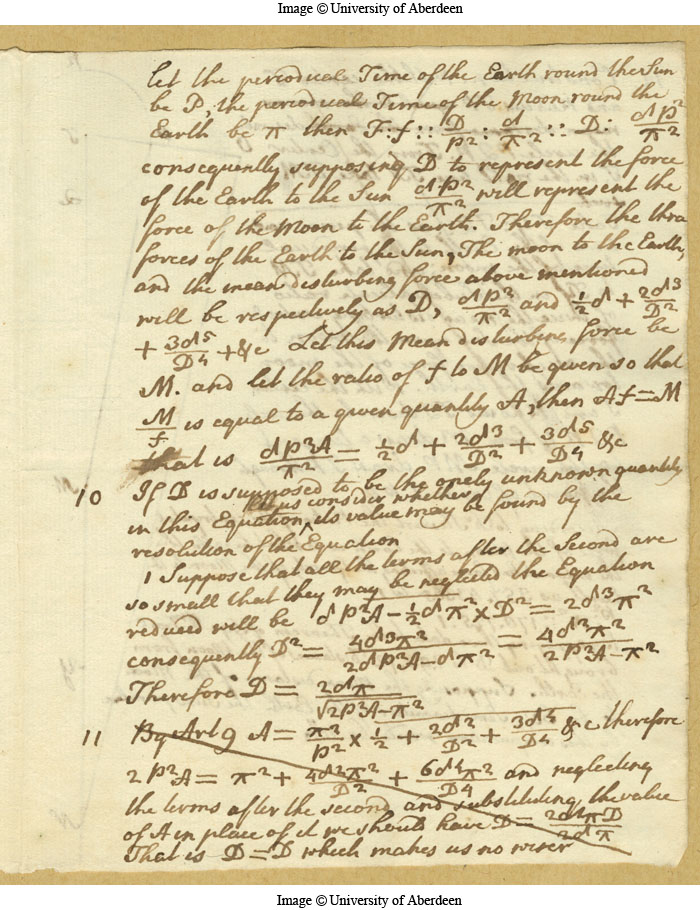 Image © University of Aberdeen
Let the periodical Time of the Earth round the Sun
be P, the periodical Time of the Moon round the
Earth be π then F : f :: D/P² : d/π² :: D : dP²/π²
consequently supposing D to represent the force
of the Earth to the Sun dP²/π² will represent the
force of the Moon to the Earth. Therefore the three
forces of the Earth to the Sun, The moon to the Earth,
and the mean disturbing force above mentioned
will be respectively as D, dP²/π² and ½d + 2d³/D²
+ 3d⁵/D⁴ + &c Let this Mean disturbing force be
M. and let the ratio of f to M be given so that
M/f is equal to a given quantity A, then Af = M
that is dP²A/π² = ½d + 2d³/D² + 3d⁵/D⁴ &c
10 If D is supposed to be the onely unknown quantity
let us consider whether
in this Equation ^ its value may be found by the
resolution of the Equation
1 Suppose that all the terms after the Second are
so small that they may be neglected the Equation
reduced will be dP²A - ½dπ² × D² = 2d³π²
consequently D² = 4d³π²/2dP²A-dπ² = 4d²π²/2P²A-π²
Therefore D = 2dπ/√2P²A-π²
11 By Art 9 A = π²/P² × ½ + 2d²/D² + 3d⁴/D⁴ &c therefore
2P²A = π² + 4d²π²/D² + 6d⁴π²/D⁴ and neglecting
the terms after the second and substituting the value
of A in place of it we should have D = 2dπD/2dπ
That is D = D which makes us no wiser
Image © University of Aberdeen